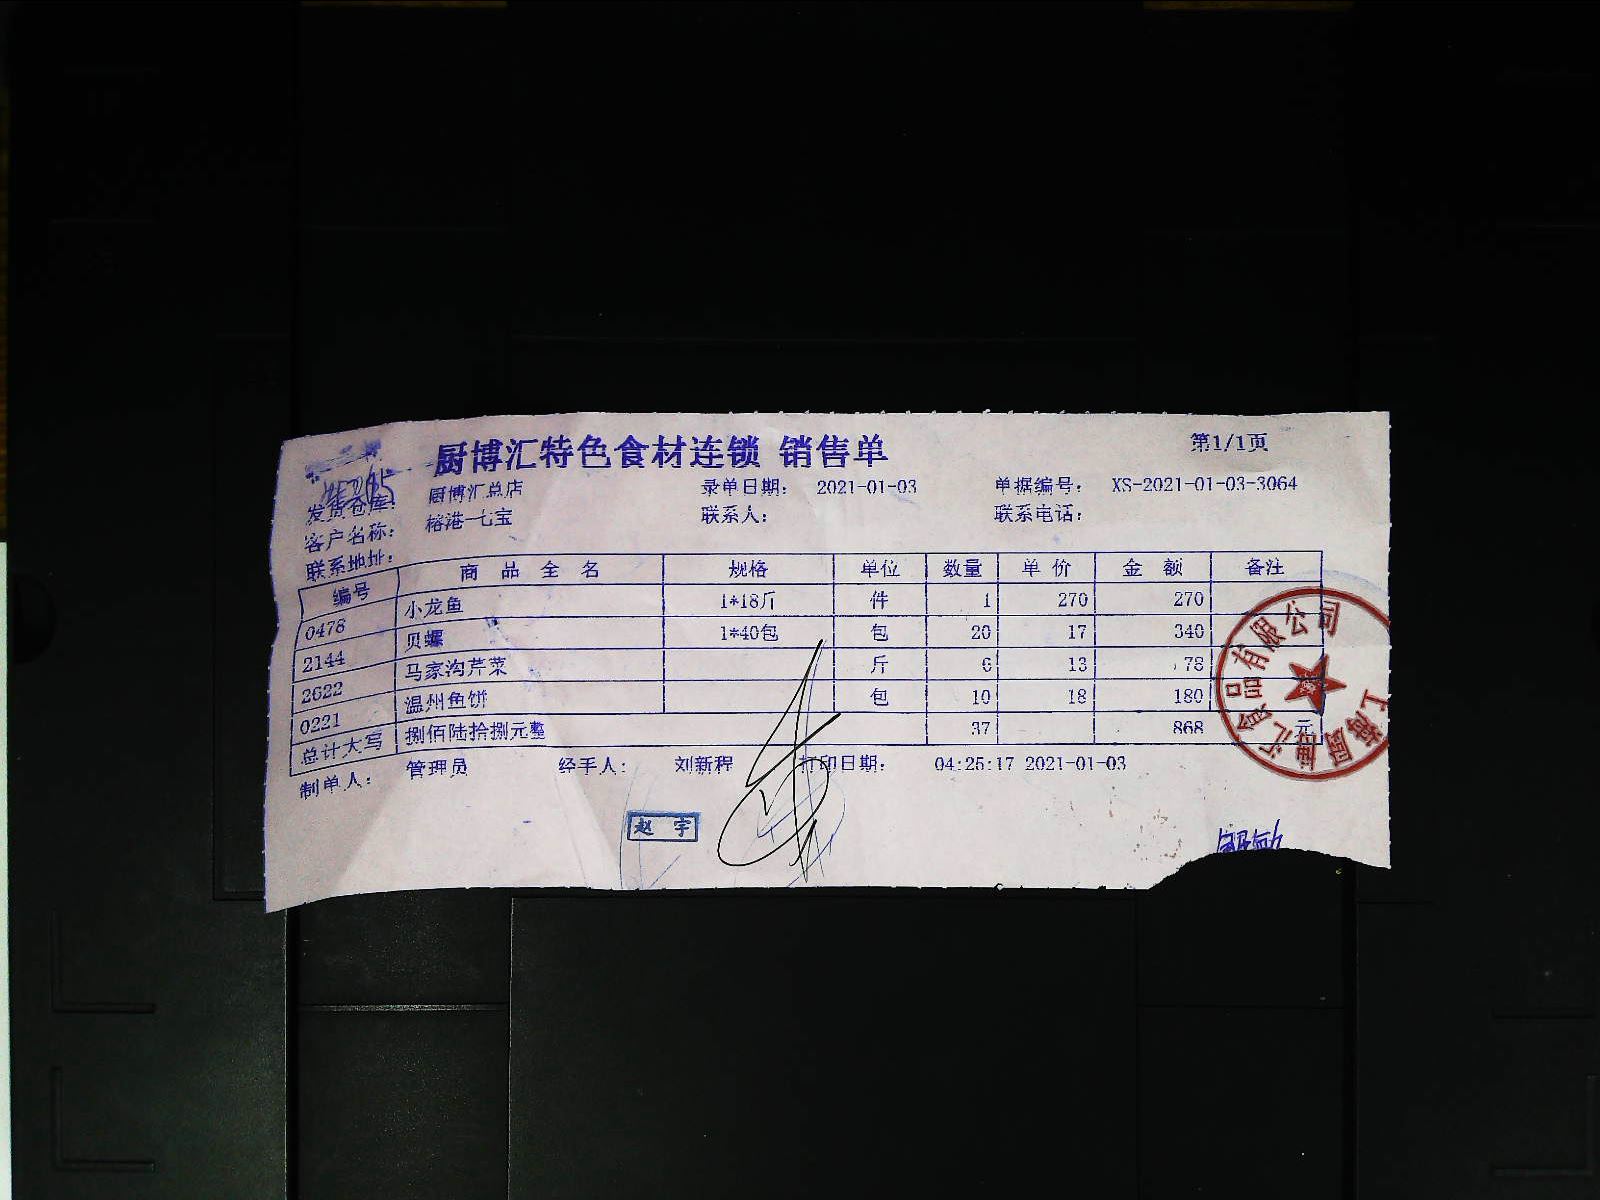 厨博汇特色食材连锁 销售单 第1/1页
发货仓库: 厨博汇总店 录单日期: 2021-01-03 单据编号: XS-2021-01-03-3064
客户名称: 榕港一七宝 联系人: 联系电话:
联系地址:
编号 商品全名 规格 单位 数量 单价 金额 备注
0478 小龙鱼 1*18斤 件 1 270 270
2144 贝螺 1*40包 包 20 17 340
2622 马家沟芹菜 斤 6 13 78
0221 温州鱼饼 包 10 18 180
总计大写 捌佰陆拾捌元整 37 868 元
制单人: 管理员 经手人: 刘新程 打印日期: 04:25:17 2021-01-03
赵宇
上海厨博汇食品有限公司